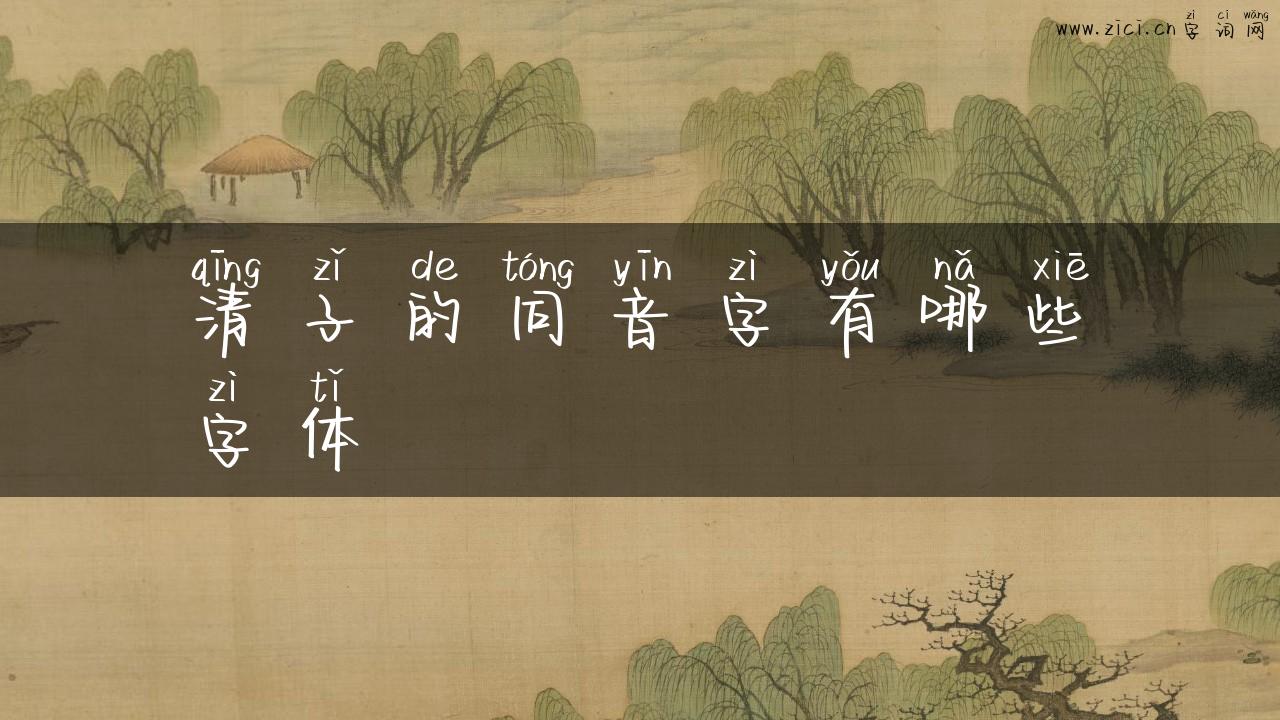 zì cí wǎng
www.zici.cn 字 词 网
qīng zǐ de tóng yīn zì yǒu nǎ xiē
清 子 的 同 音 字 有 哪 些
zì tǐ
字 体